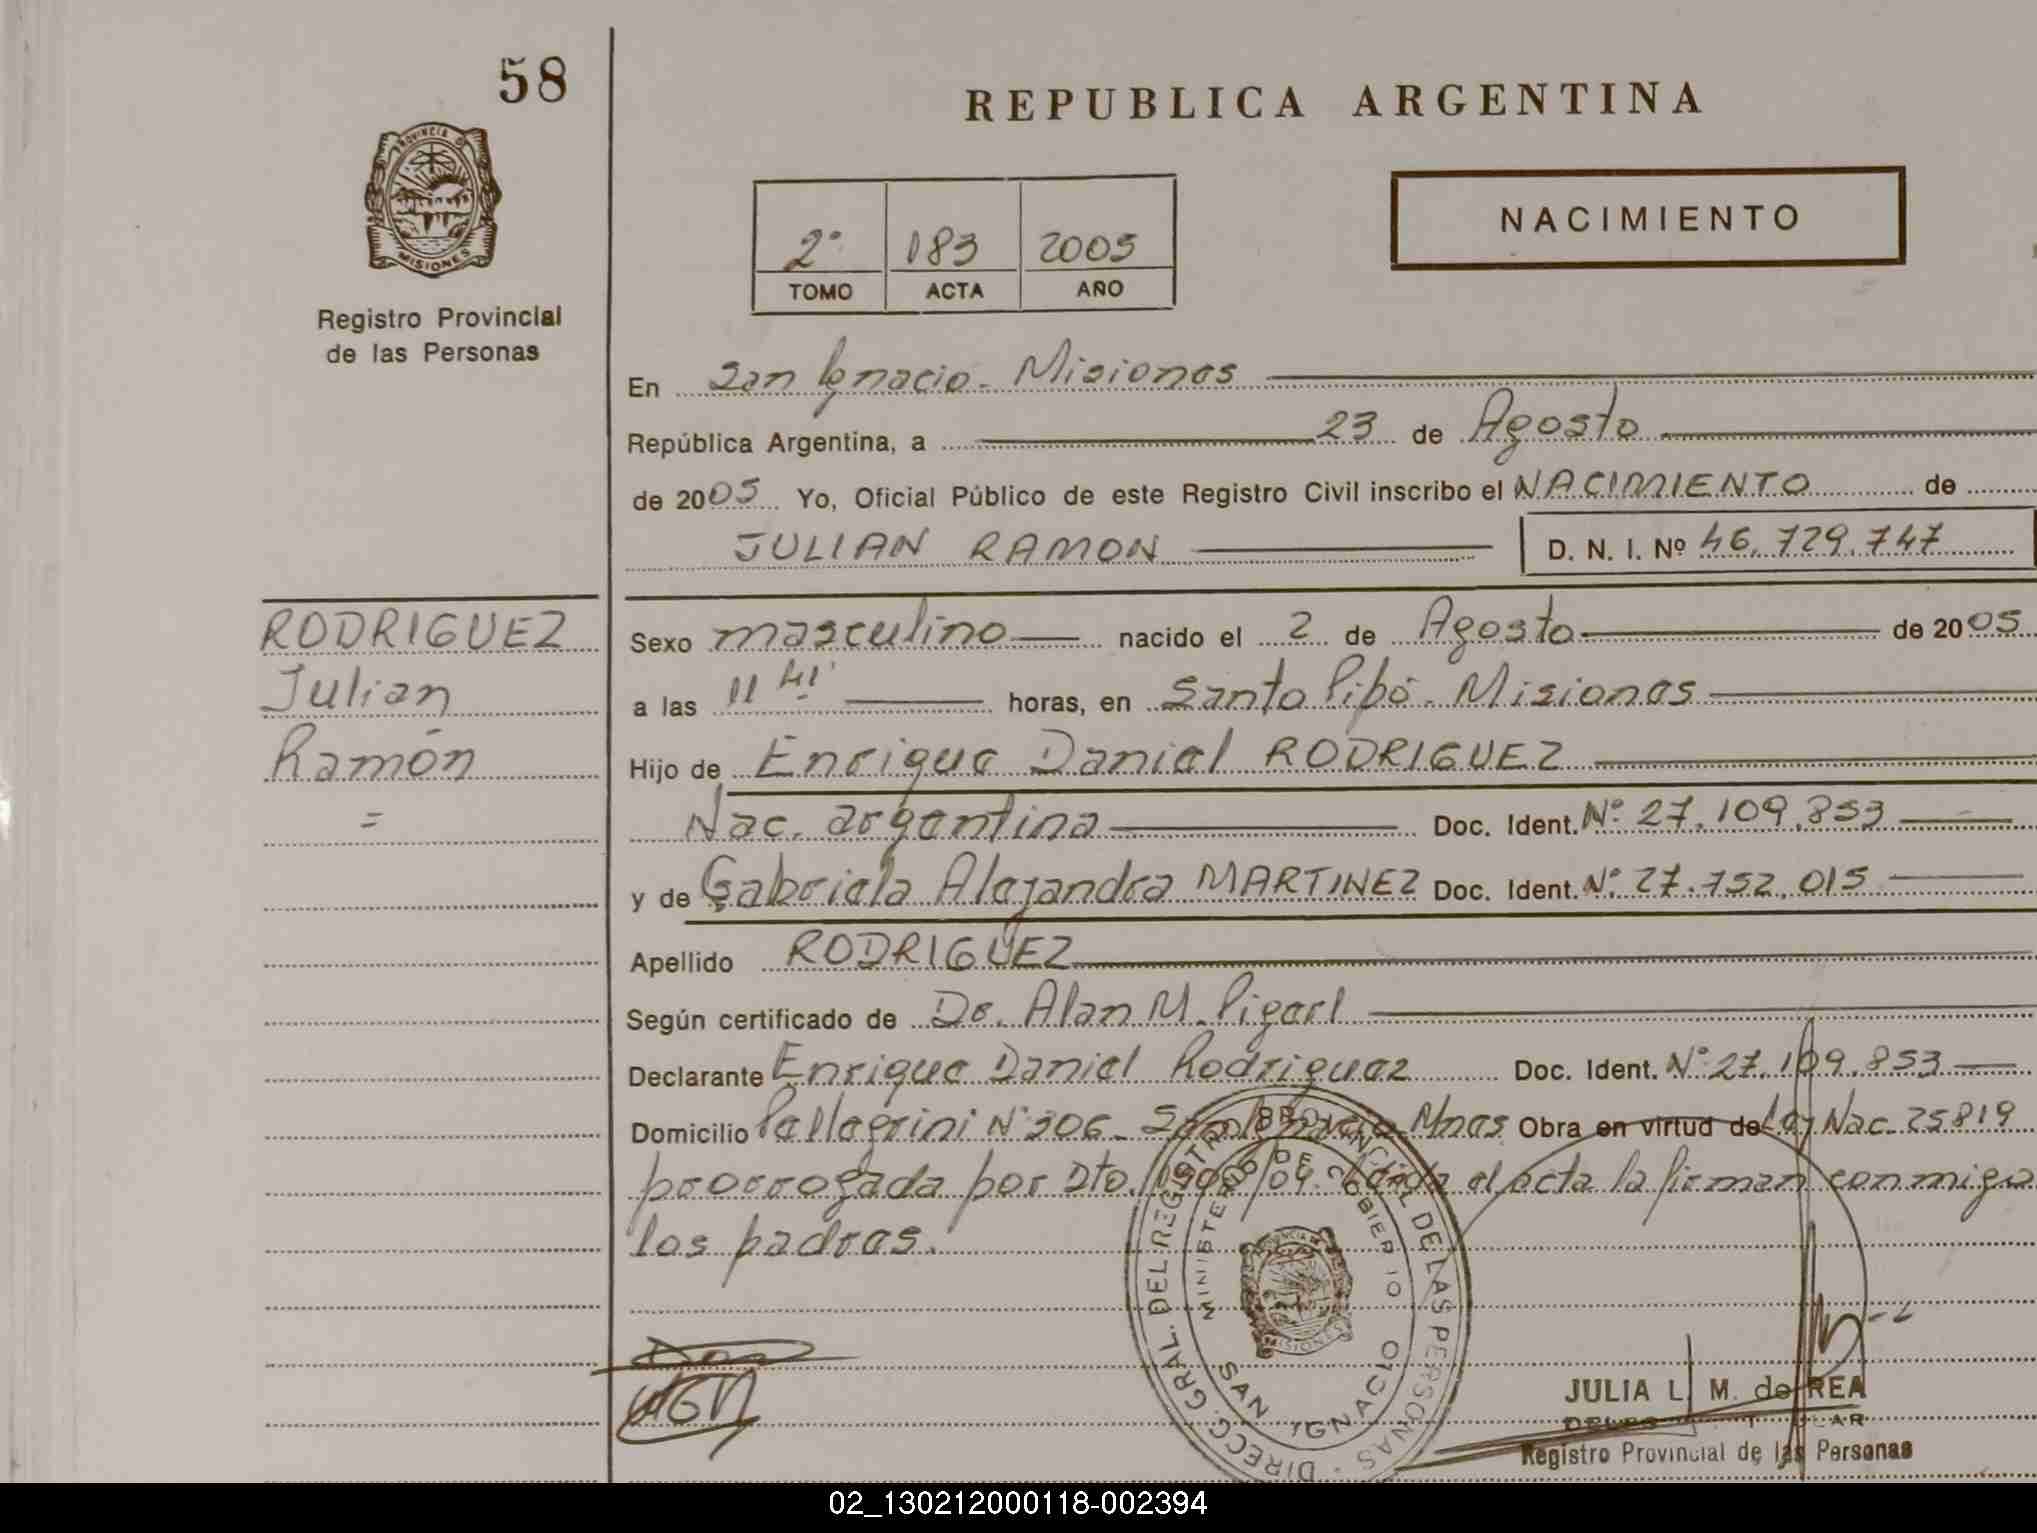 58
REPUBLICA ARGENTINA
PROVINCIA DE
MISIONES
Registro Provincial
de las Personas
NACIMIENTO
2° 183 2005
TOMO ACTA AÑO
En San Ignacio - Misiones
República Argentina, a 23 de Agosto
de 2005 Yo, Oficial Público de este Registro Civil inscribo el NACIMIENTO de
JULIAN RAMON D. N. I. Nº 46.729.747
RODRIGUEZ
Julian
Ramón
=
Sexo masculino nacido el 2 de Agosto de 2005
a las 11 hs horas, en Santo Pipó - Misiones
Hijo de Enrique Daniel RODRIGUEZ
Nac. argentina Doc. Ident. Nº 27.109.853
y de Gabriela Alejandra MARTINEZ Doc. Ident. Nº 27.752.015
Apellido RODRIGUEZ
Según certificado de Dr. Alan M.
Declarante Enrique Daniel Rodriguez Doc. Ident. Nº 27.109.853
Domicilio Pellegrini Nº 306 - San Ignacio Mnes Obra en virtud de Ley Nac. 25819
prorrogada por Dto. /04. Leída el acta la firman conmigo
los padres.
DIRECC. GRAL. DEL REGISTRO PROVINCIAL DE LAS PERSONAS
MINISTERIO DE GOBIERNO
MISIONES
SAN IGNACIO
JULIA L. M. de REA
Registro Provincial de las Personas
02_130212000118-002394